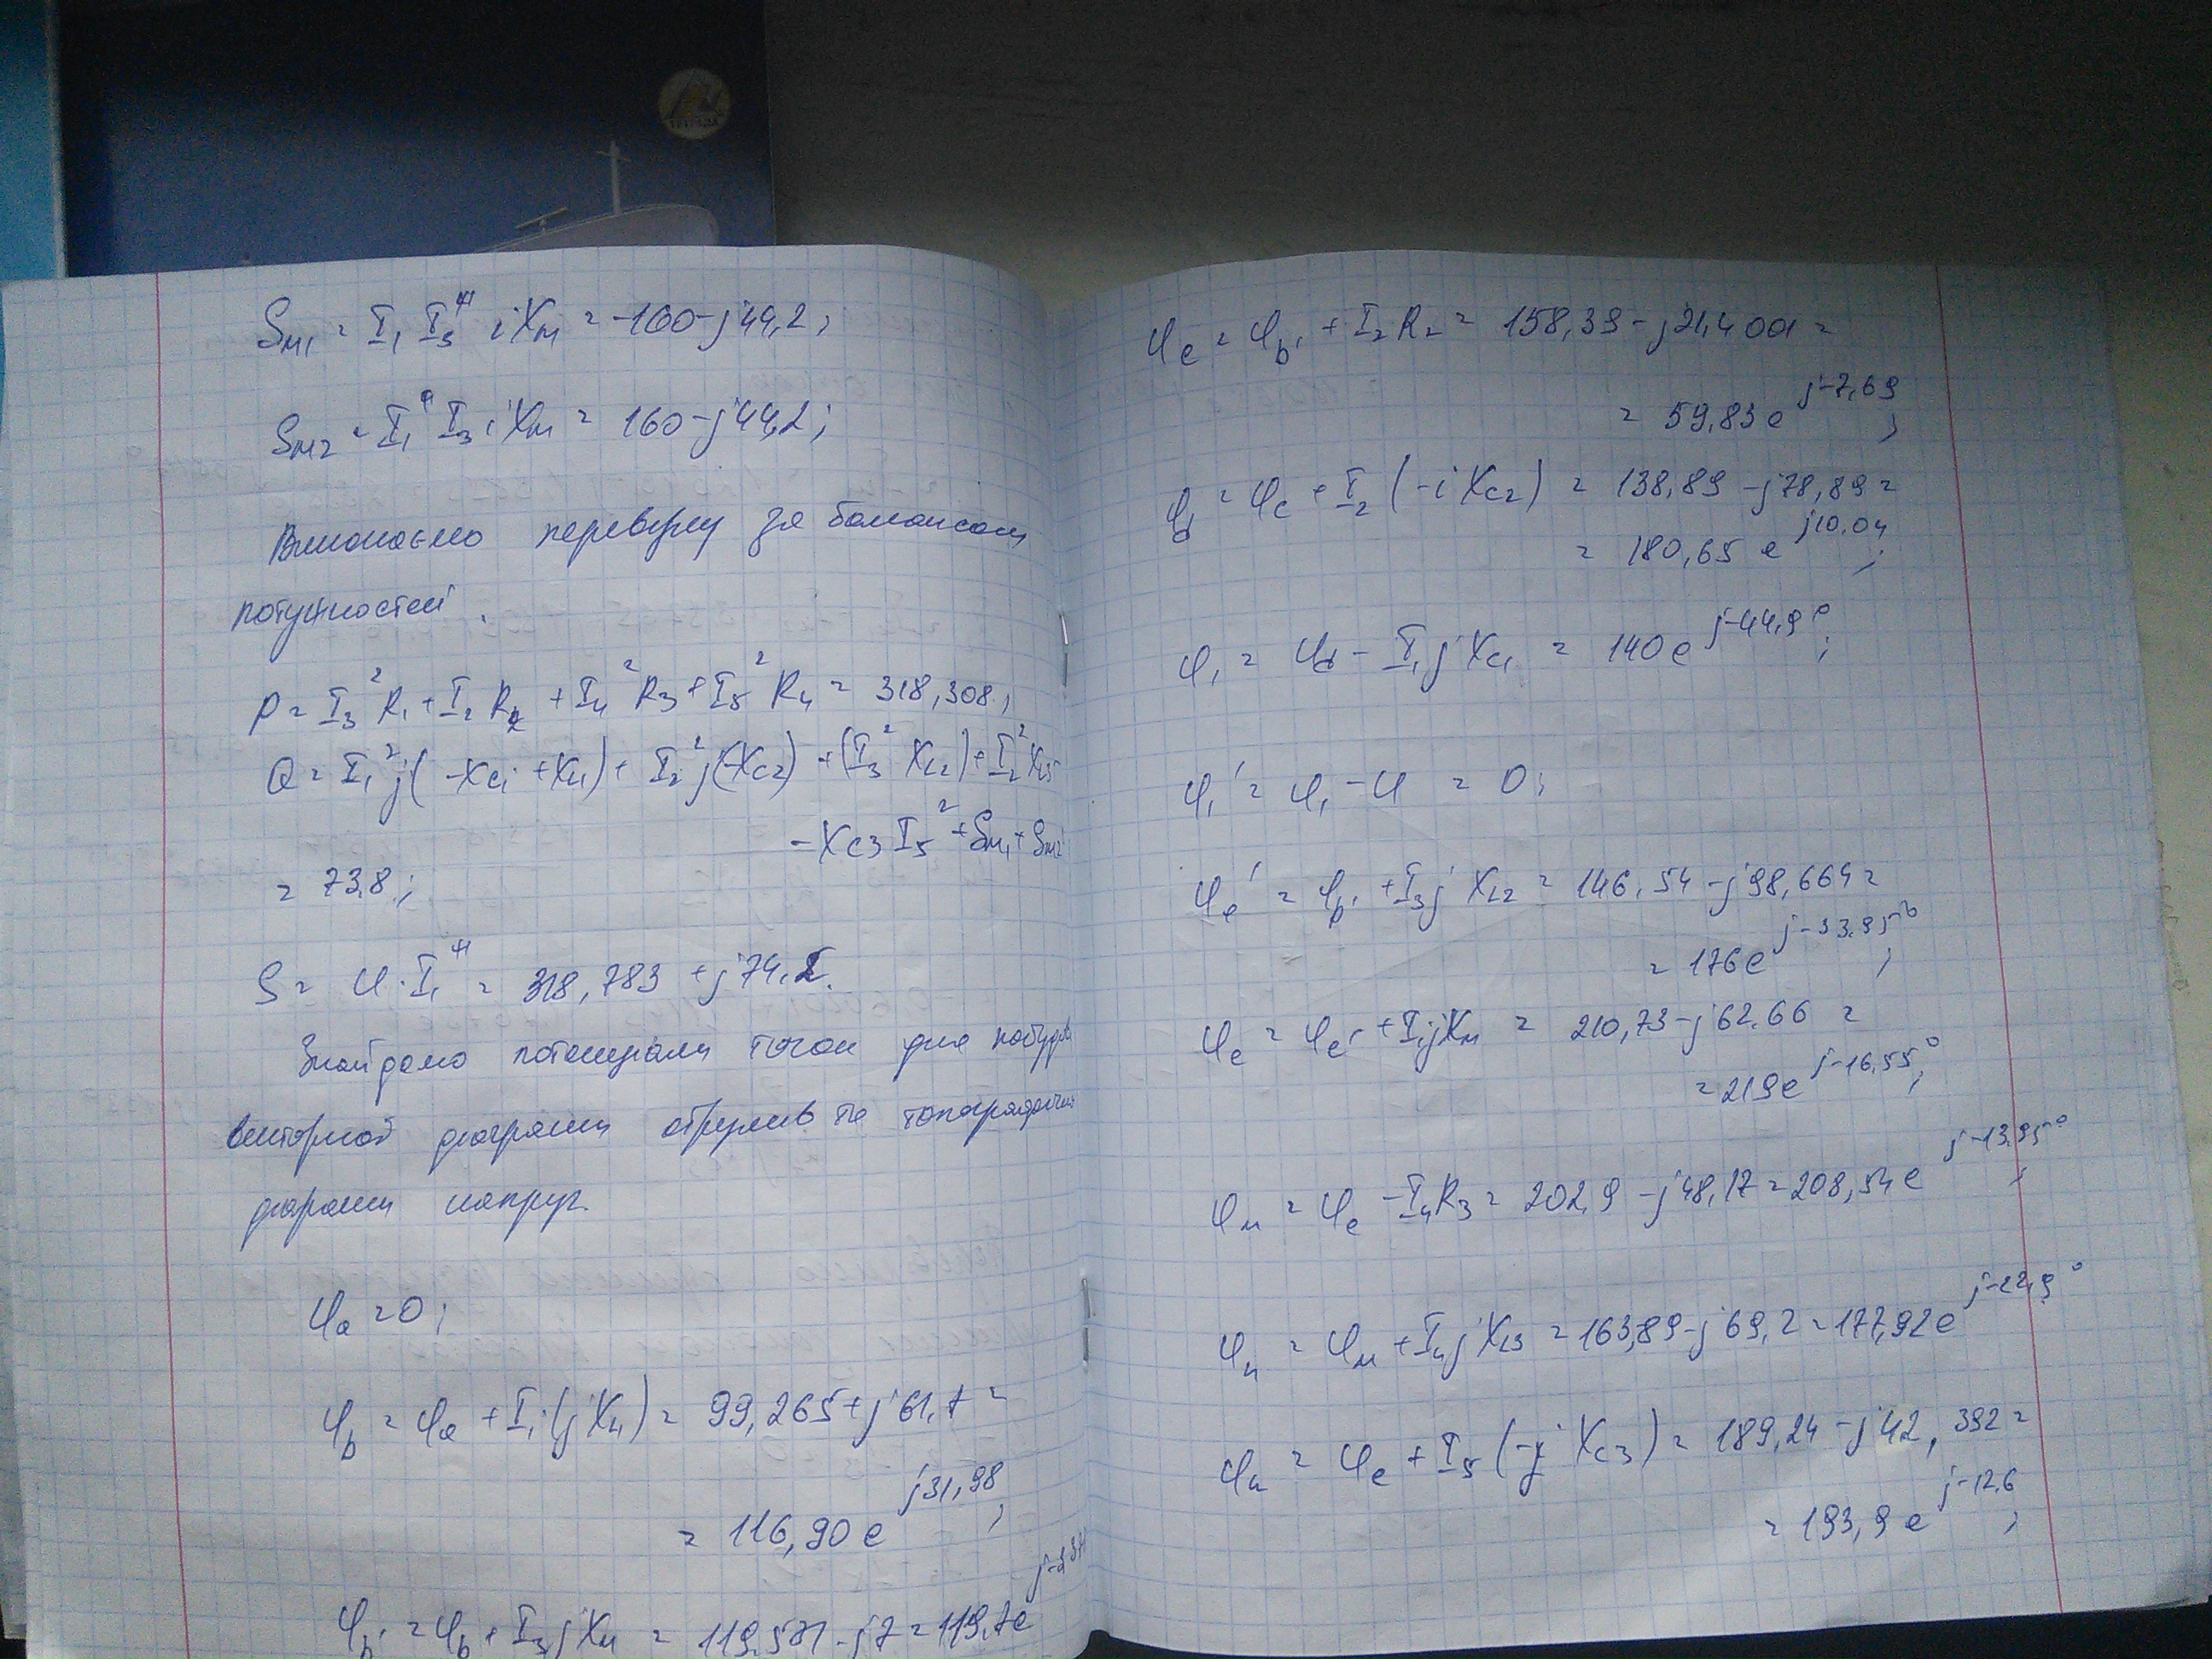 S_M1 = I_1 I_3^* iX_M = -160-j44,2;
S_M2 = I_1^* I_3 iX_M = 160-j44,2;
Виконаємо перевірку за балансом
потужностей.
P = I_3^2 R_1 + I_2 R_2 + I_4^2 R_3 + I_5^2 R_4 = 318,308;
Q = I_1^2 j(-X_C1 + X_L1) + I_2^2 j(-X_C2) + (I_3^2 X_L2) + I_2^2 X_L5
-X_C3 I_5^2 + S_M1 + S_M2
= 73,8;
S = U·I_1^* = 318,783 + j74,2.
Знайдемо потенціали точок для побудови
векторної діаграми струмів та топографічної
діаграми напруг.
φ_a = 0;
φ_b = φ_a + I_1(jX_L1) = 99,265+j61,7 =
= 116,90 e^j31,98;
φ_b' = φ_b + I_3 jX_M = 119,571-j7 = 119,7e
φ_c = φ_b' + I_2 R_2 = 158,39-j21,4001 =
= 59,83 e^j-7,69;
φ_d = φ_c + I_2(-iX_C2) = 138,89-j78,89 =
= 180,65 e^j10,04;
φ_1 = φ_d - I_1 jX_C1 = 140e^j-44,9°;
φ_1' = φ_1 - U = 0;
φ_e' = φ_b' + I_3 j X_L2 = 146,54-j98,664 =
= 176e^j-33,95°;
φ_e = φ_e' + I_1 jX_M = 210,73-j62,66 =
= 219e^j-16,55°;
φ_м = φ_e - I_4 R_3 = 202,9-j48,17 = 208,54e^j-13,95°;
φ_n = φ_м + I_4 jX_L3 = 163,89-j69,2 = 177,92e^j-22,9°
φ_k = φ_e + I_5(-jX_C3) = 189,24-j42,392 =
= 193,9 e^j-12,6;